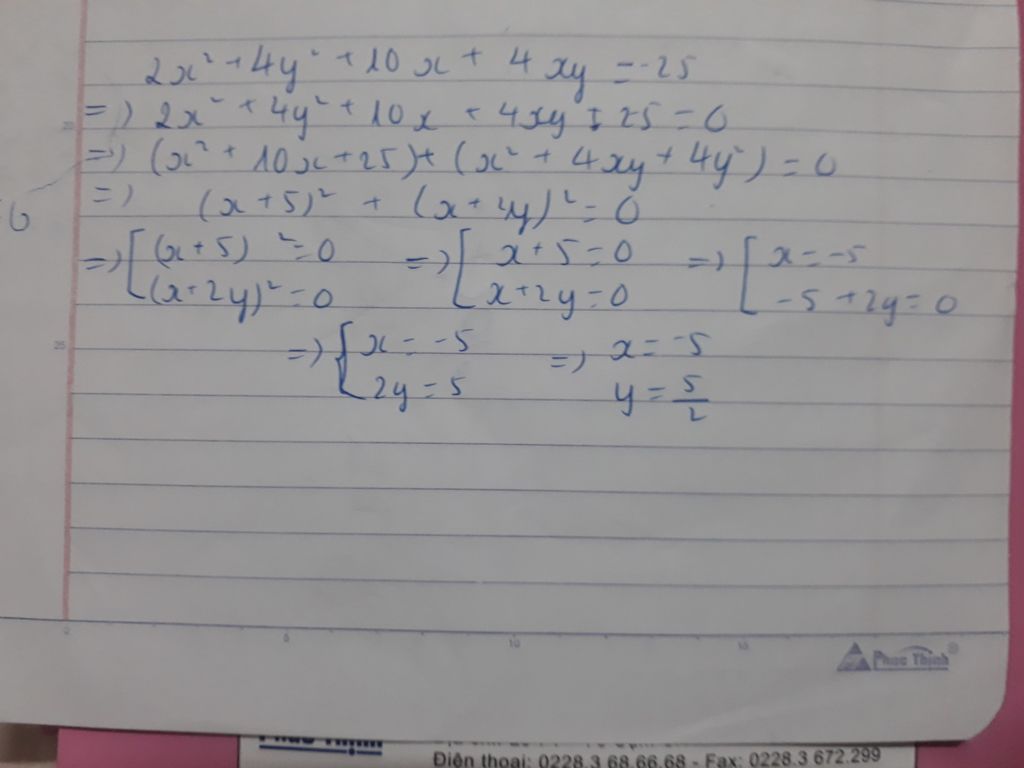 2x² + 4y² + 10x + 4xy = -25
=) 2x² + 4y² + 10x + 4xy + 25 = 0
=) (x² + 10x + 25) + (x² + 4xy + 4y²) = 0
=) (x + 5)² + (x + 2y)² = 0
=) [ (x + 5)² = 0 =) [ x + 5 = 0 =) [ x = -5
(x + 2y)² = 0 x + 2y = 0 -5 + 2y = 0
=) { x = -5 =) x = -5
2y = 5 y = 5/2
6
20
25
0 5 10 15
Phúc Thịnh®
Điện thoại: 0228.3 68.66.68 - Fax: 0228.3 672.299